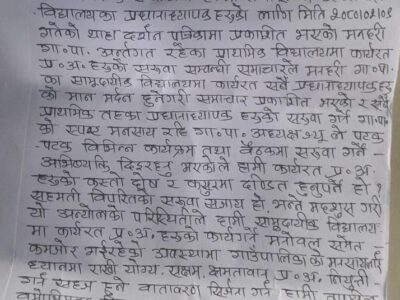 विद्यालयका प्रधानाध्यापक हरुको लागि मिति २०८०।०२।०९
गतेको यहाँ दर्पण पत्रिकामा प्रकाशित भएको मनहरी
गा॰पा॰ अन्तर्गत रहेका प्राथमिक विद्यालयमा कार्यरत
प्र॰अ॰ हरुको सरुवा सम्बन्धी समाचारले मनहरी गा॰पा॰
का सामुदायीक विद्यालयमा कार्यरत सबै प्रधानाध्यापकहरु
को मान मर्दन हुनेगरी समाचार प्रकाशित भएको र सबै
प्राथमिक तहका प्रधानाध्यापक हरुको सरुवा गर्न गा॰पा॰
को स्पष्ट मनसाय रहि गा॰पा॰ अध्यक्ष ज्यू ले पटक
-पटक विभिन्न कार्यक्रम तथा बैठकमा सरुवा गर्ने
अभिव्यक्ति दिइरहनु भएकोले हामी कार्यरत प्र॰अ॰
हरुको कस्तो दोष र कसुरमा दण्डित हुनुपर्ने हो ?
सहमती विपरितको सरुवा सजाय हो, भन्ने महशुस गरी
यो अन्यौलको परिस्थितीले हामी सामुदायीक विद्यालय
मा कार्यरत प्र॰अ॰ हरुको कार्यगर्ने मनोवल समेत
कमजोर भईरहेको अवस्थामा गाउँपालिकाको
ध्यानमा राखी योग्य, सक्षम, क्षमतावान् प्र॰अ॰ नियुक्ती
गर्न सहज हुने वातावरण सिर्जना गर्न हामी